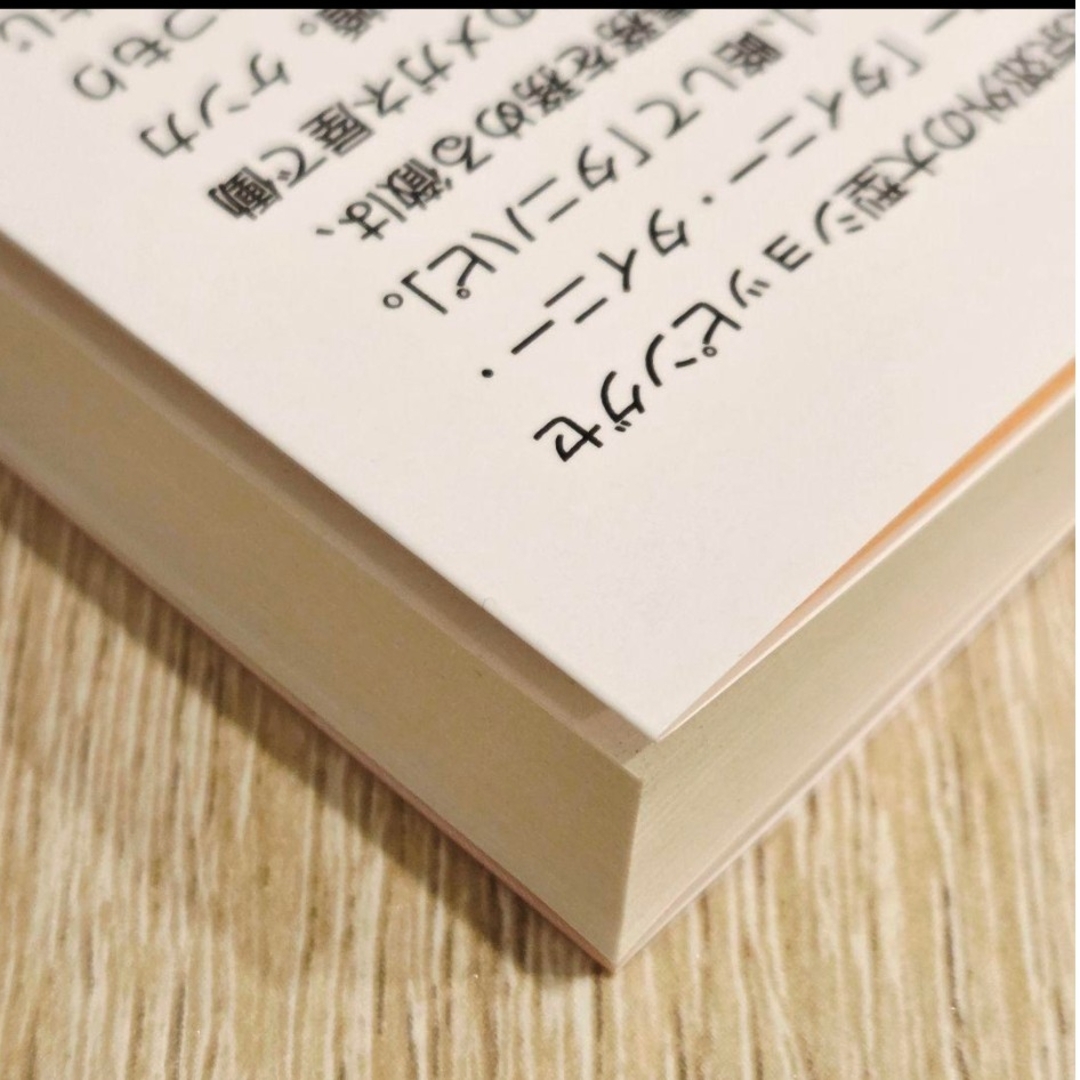 京郊外の大型ショッピングセ
ー「タイニー・タイニー・
」、略して「タニハピ」。
務を務める徹は、
のメガネ屋で働
。ケンカ
つもり